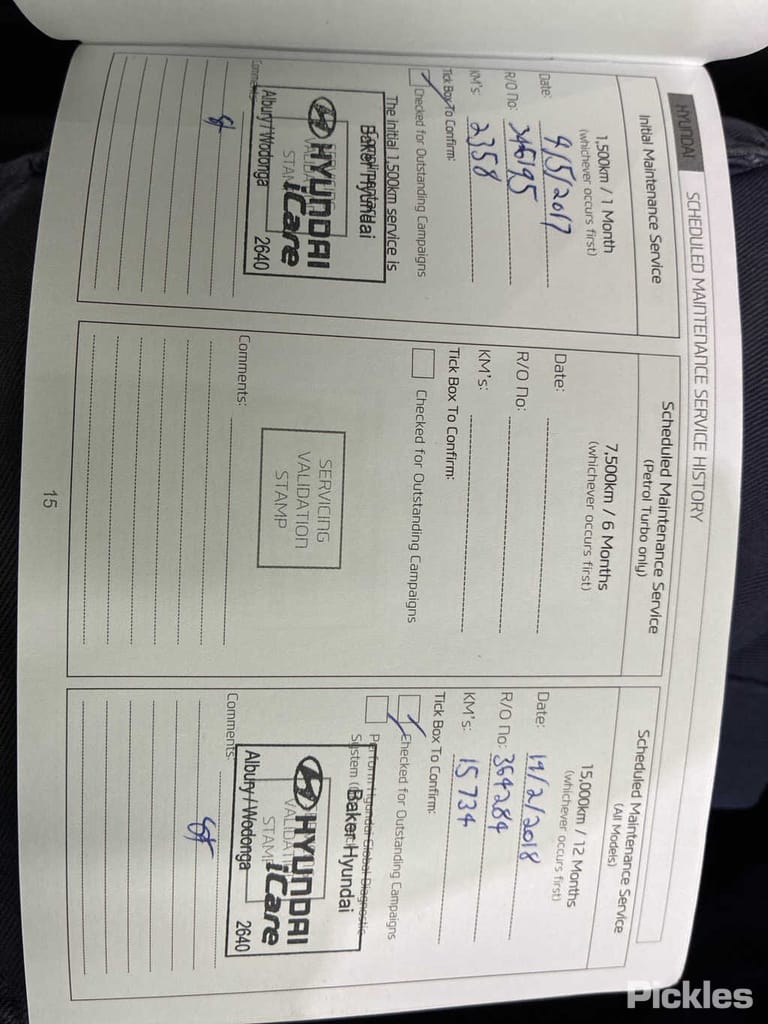 HYUNDAI SCHEDULED MAINTENANCE SERVICE HISTORY
Initial Maintenance Service
1,500km / 1 Month
(whichever occurs first)
Date: 9/5/2017
R/O No: 346195
KM's: 2358
Tick Box To Confirm:
Checked for Outstanding Campaigns
The initial 1,500km service is
Baker Hyundai
HYUNDAI
iCare
Albury / Wodonga 2640
Comments:
Scheduled Maintenance Service
(Petrol Turbo only)
7,500km / 6 Months
(whichever occurs first)
Date:
R/O No:
KM's:
Tick Box To Confirm:
Checked for Outstanding Campaigns
SERVICING
VALIDATION
STAMP
Comments:
Scheduled Maintenance Service
(All Models)
15,000km / 12 Months
(whichever occurs first)
Date: 19/2/2018
R/O No: 364284
KM's: 15734
Tick Box To Confirm:
Checked for Outstanding Campaigns
Perform Hyundai Global Diagnostic
System
Baker Hyundai
HYUNDAI
iCare
Albury / Wodonga 2640
Comments:
15
Pickles